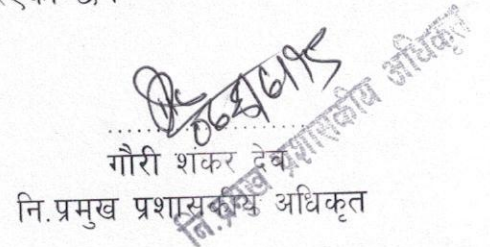 गौरी शंकर देव
नि.प्रमुख प्रशासकीय अधिकृत
नि.प्रमुख प्रशासकीय अधिकृत